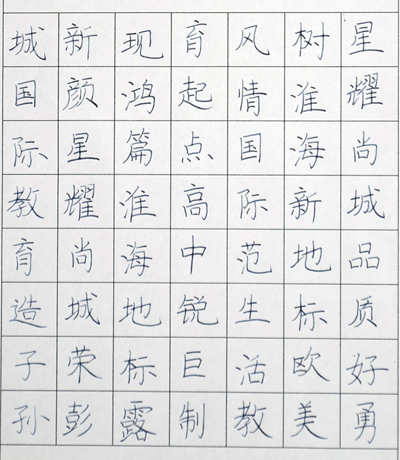 星耀尚城品质好勇
树淮海新地标欧美
风情国际范生活教
育起点高中锐巨制
现鸿篇淮海地标露
新颜星耀尚城荣彭
城国际教育造子孙